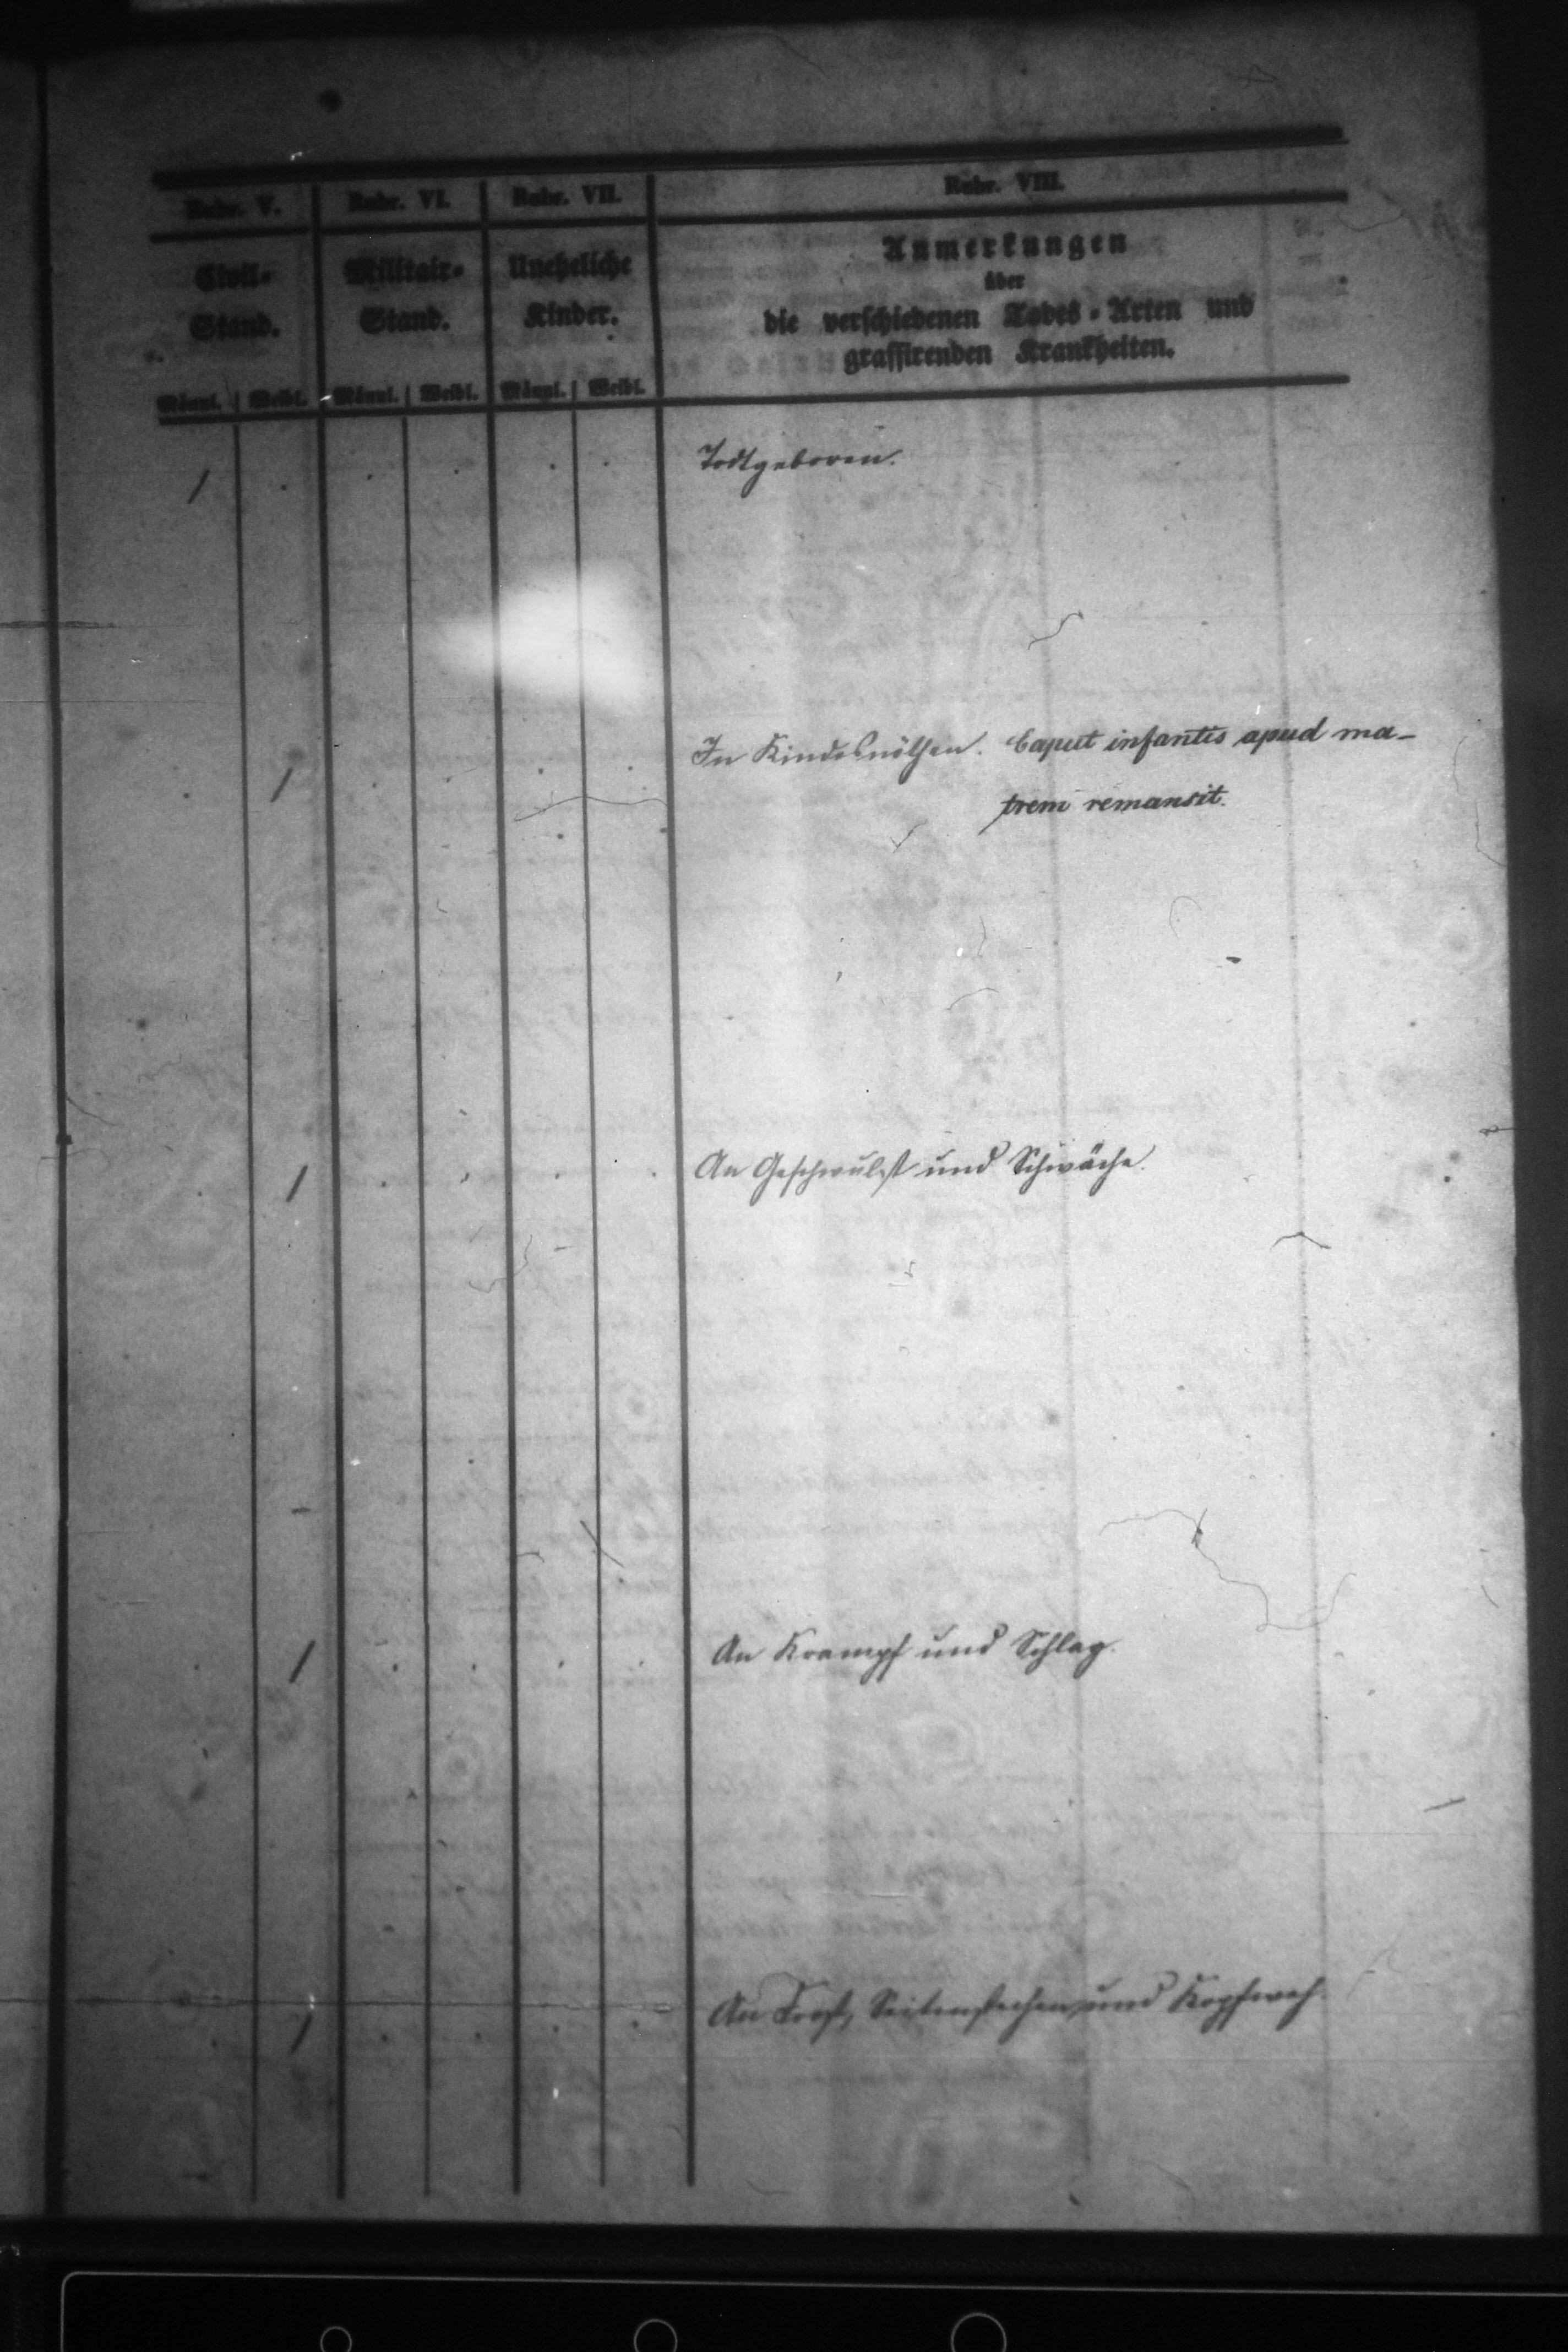 Rubr. V. Rubr. VI. Rubr. VII. Rubr. VIII.
Civil-
Stand.
Militair-
Stand.
Uneheliche
Kinder.
Anmerkungen
über
die verschiedenen Todes-Arten und
grassirenden Krankheiten.
Männl. Weibl. Männl. Weibl. Männl. Weibl.
1 . . . . . Todtgeboren.
. 1 . . . . In Kindesnöthen. Caput infantis apud ma-
trem remansit.
1 . . . . An Geschwulst und Schwäche.
. 1 . . . . An Krampf und Schlag.
1 . . . . An Frost, Seitenstechen und Kopfweh